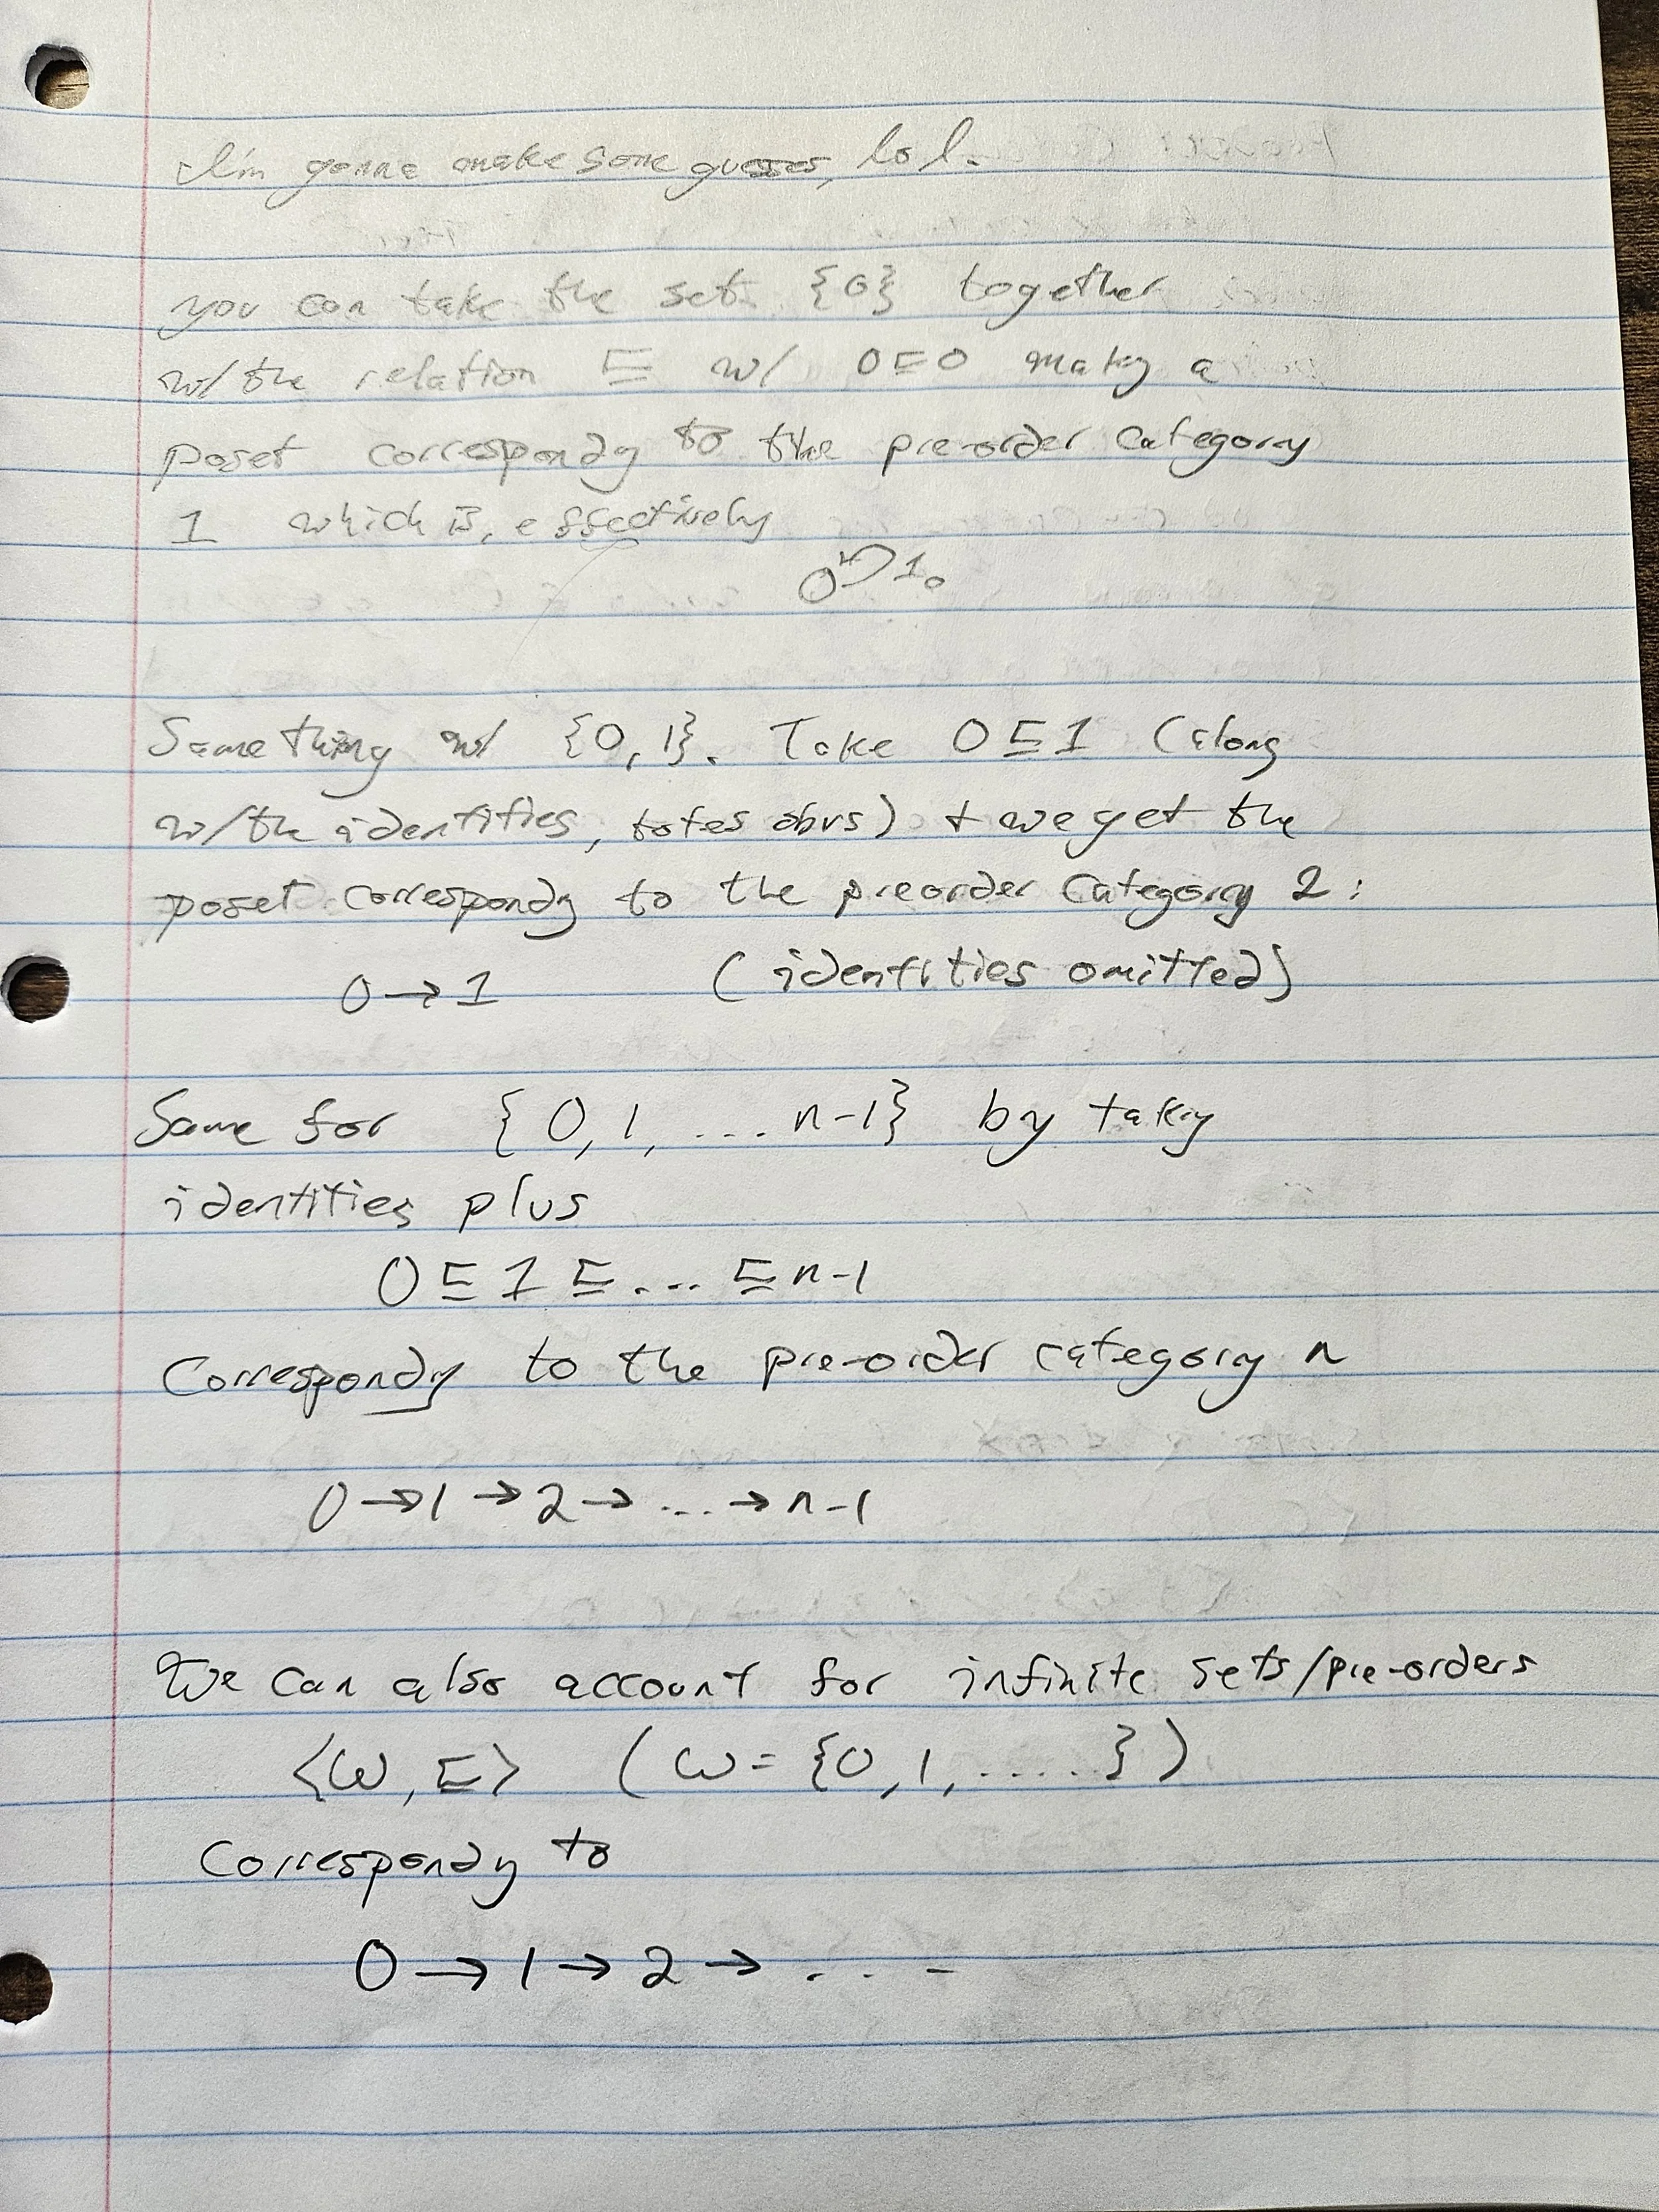 I'm gonna make some guesses, lol.
you can take the set {0} together
w/ the relation ⊑ w/ 0⊑0 making a
poset corresponding to the pre-order category
1 which is, effectively
0 1₀
Same thing w/ {0,1}. Take 0⊑1 (along
w/ the identities, totes obvs) + we get the
poset corresponding to the preorder category 2:
0→1 (identities omitted)
Same for {0,1,...n-1} by taking
identities plus
0⊑1⊑...⊑n-1
Corresponding to the pre-order category n
0→1→2→...→n-1
We can also account for infinite sets/pre-orders
⟨ω,⊑⟩ (ω={0,1,.....})
Corresponding to
0→1→2→...